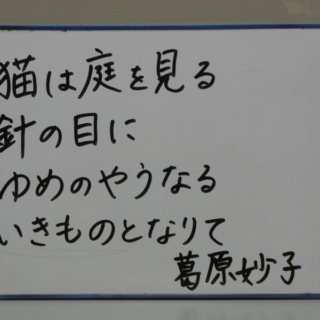 猫は庭を見る
針の目に
ゆめのやうなる
いきものとなりて
葛原妙子